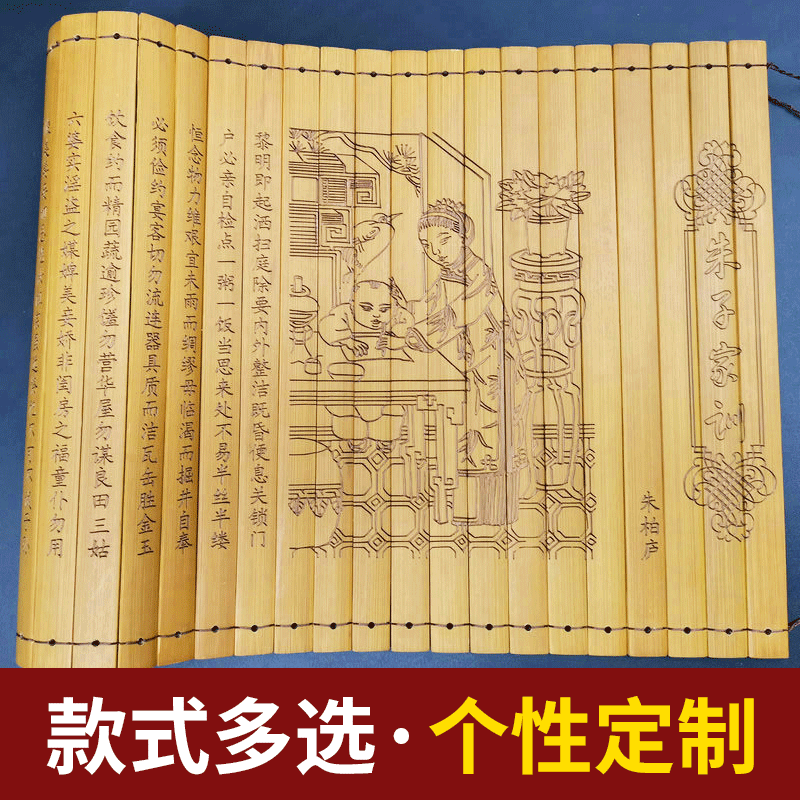 朱子家训
朱柏庐
黎明即起洒扫庭除要内外整洁既昏便息关锁门
户必亲自检点一粥一饭当思来处不易半丝半缕
恒念物力维艰宜未雨而绸缪毋临渴而掘井自奉
必须俭约宴客切勿流连器具质而洁瓦缶胜金玉
饮食约而精园蔬逾珍馐勿营华屋勿谋良田三姑
六婆实淫盗之媒婢美妾娇非闺房之福童仆勿用
款式多选·个性定制